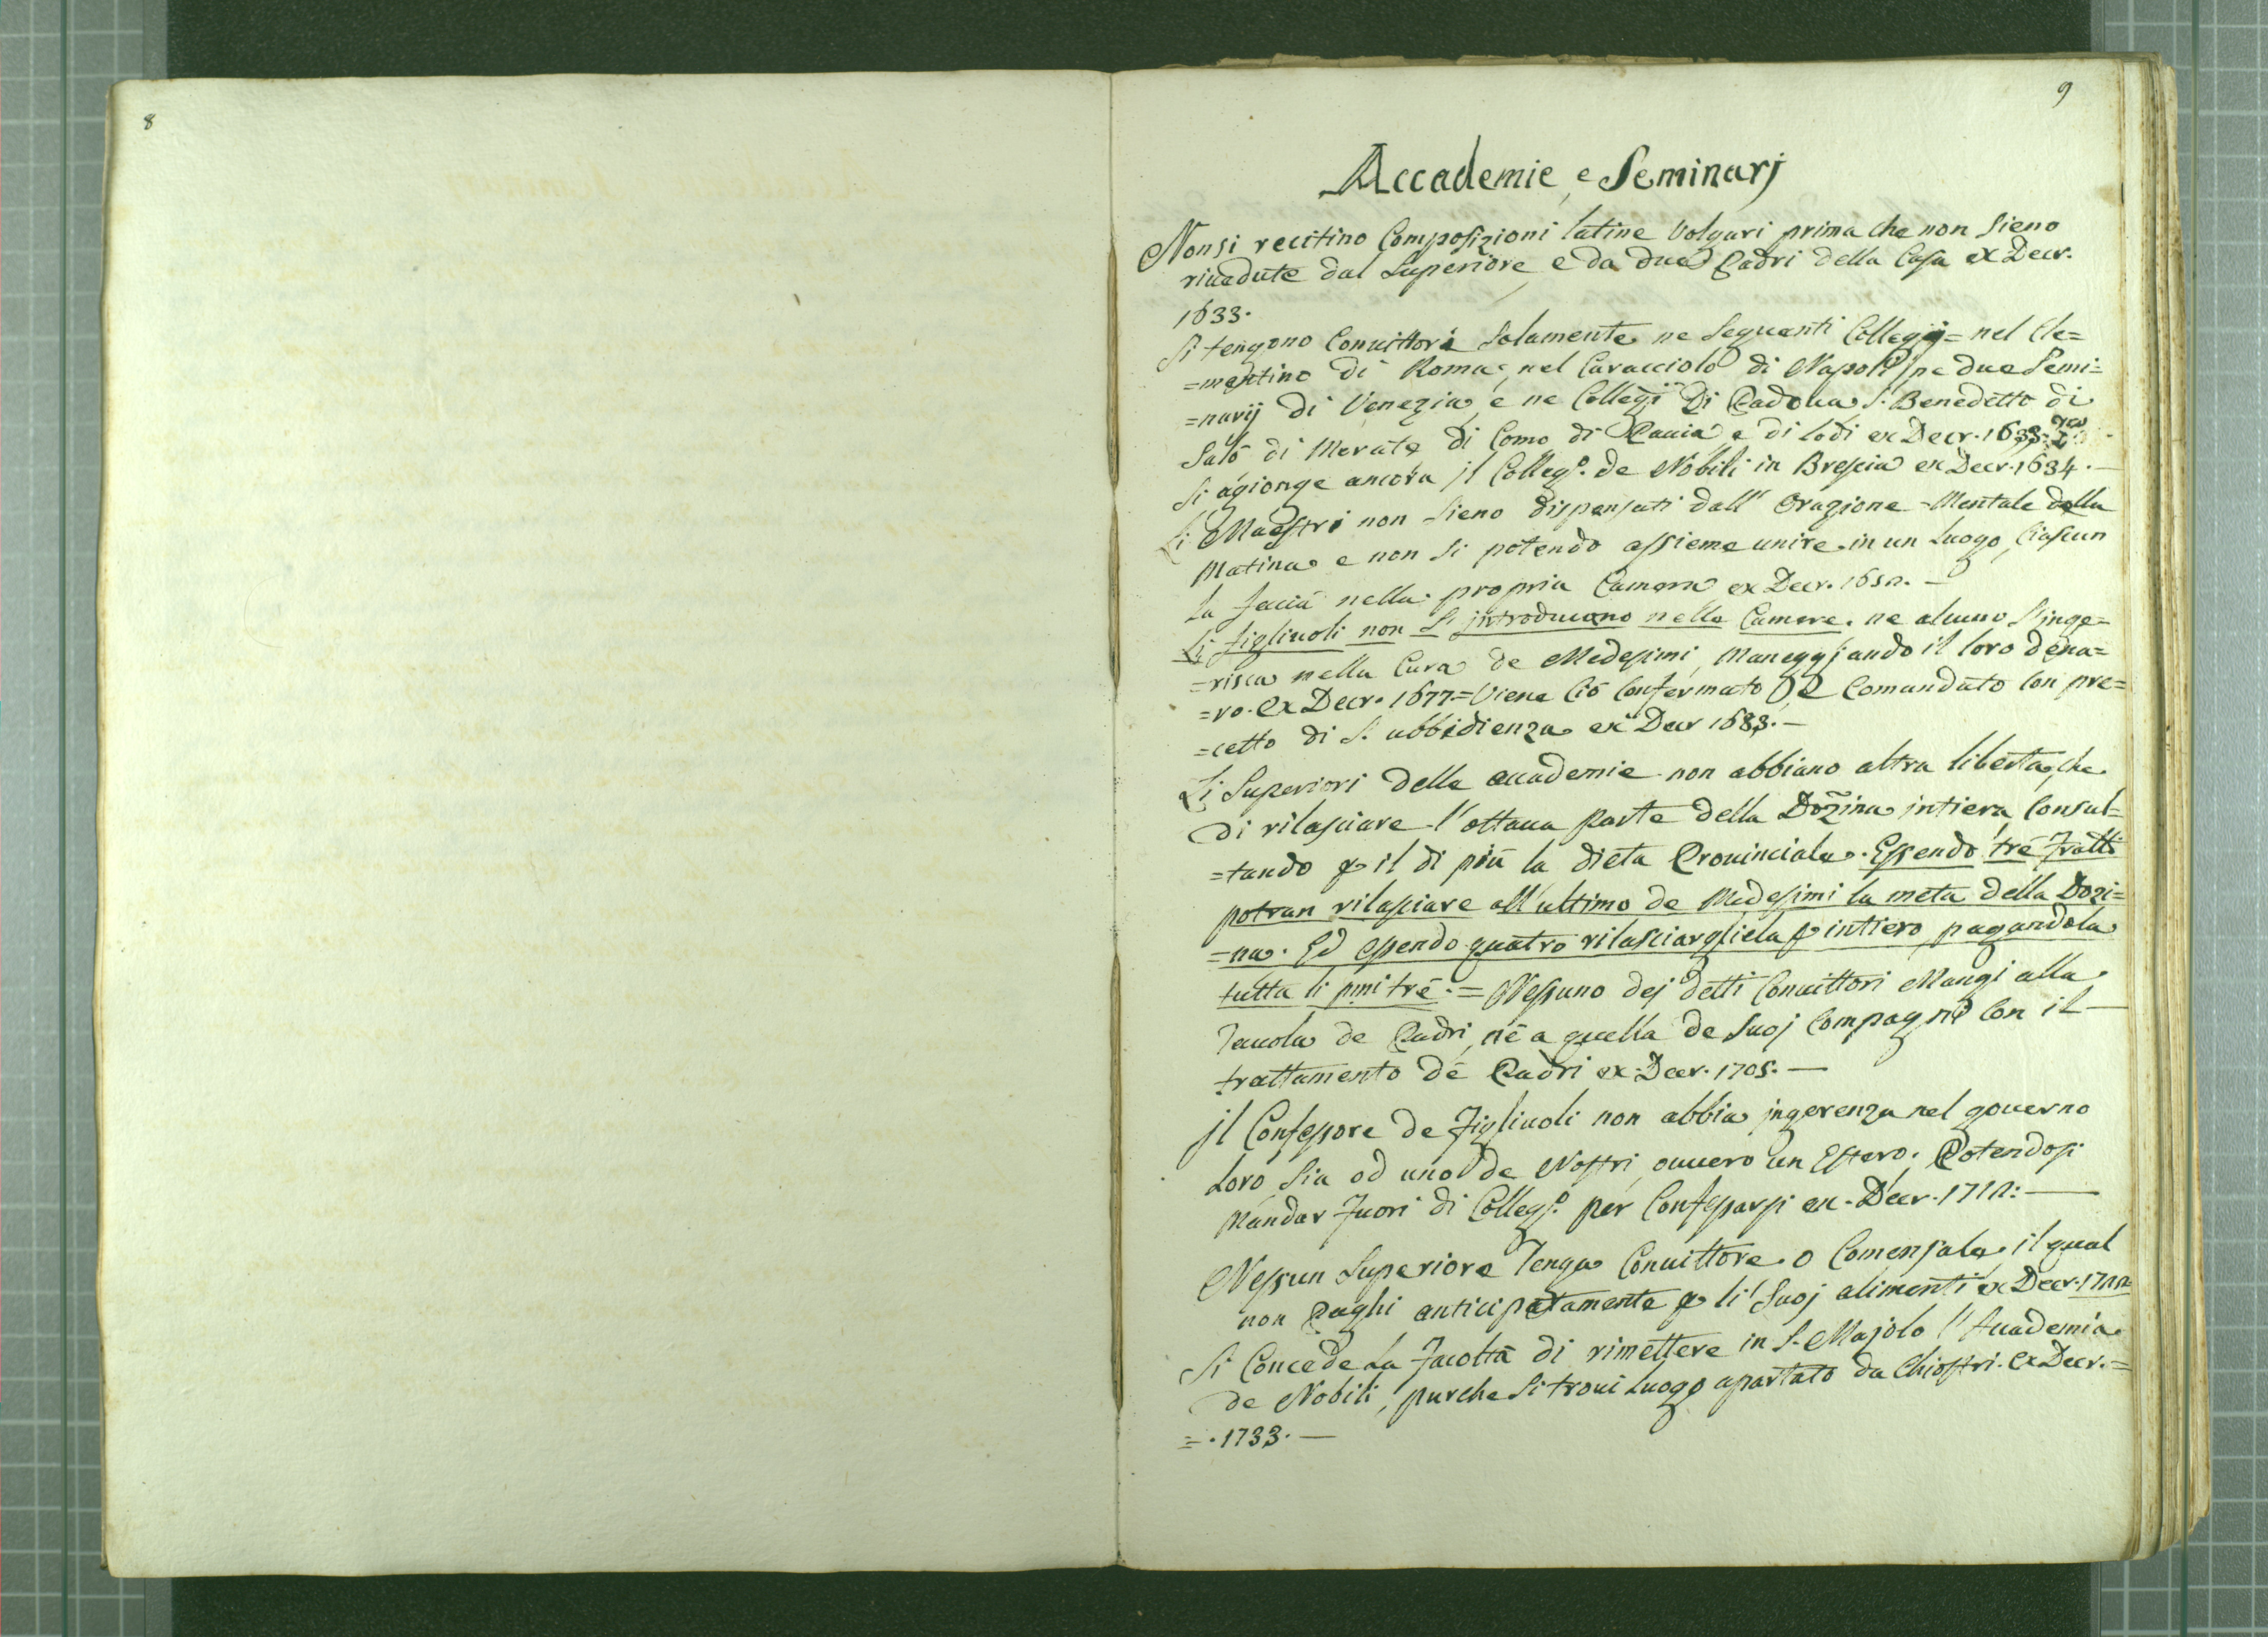 8
9
Accademie, e Seminarj
Non si recitino Composizioni latine Volgari prima che non sieno
rivedute dal Superiore, e da due Padri della Casa ex Decr.
1633.
Si tengono Convittori Solamente ne Seguenti Collegij = nel Cle=
=mentino di Roma, nel Caracciolo di Napoli, ne due Semi=
=narij di Venezia, e ne Collegij Di Padova, S. Benedetto di
Salò di Merate di Como di Pavia e di Lodi ex Decr. 1633.
Si agionge ancora il Collegº. de Nobili in Brescia ex Decr. 1634. —
Li Maestri non sieno dispensati dall' Orazione = Mentale della
Matina e non si potendo assieme unire in un Luogo, Ciascun
la faccia nella propria Camera ex Decr. 1650. —
Li figliuoli non Si introducono nelle Camere. ne alcuno S'inge=
=risca nella Cura de Medesimi, Maneggiando il loro dena=
=ro. Ex Decr. 1677. = Viene Ciò Confermato, e Comandato Con pre=
=cetto di S. ubbidienza ex Decr 1683. —
Li Superiori delle accademie non abbiano altra libertà, che
di rilasciare l'ottava parte della Dozina intiera, Consul=
=tando p il di più la dieta Provinciale. Essendo trè Fratti
potran rilasciare all'ultimo de Medesimi la metà della Dozi=
=na. Ed essendo quatro rilasciargliela p intiero, pagandola
tutta li pmi trè. = Nessuno dej detti Convittori Mangi alla
Tavola de Padri, nè a quella de Suoj Compagni Con il —
trattamento dè Padri ex Decr. 1705. —
jl Confessore de Figliuoli non abbia jngerenza nel governo
Loro, Sia od uno de Nostri, ovvero un Estero. Potendosi
Mandar Fuori di Collegº. per Confessarsi ex Decr. 1712: —
Nessun Superiore Tenga Convittore o Comensale, il qual
non Paghi anticipatamente p li Suoj alimenti ex Decr. 1722=
Si Concede La Facoltà di rimettere in S. Majolo l'Accademia
de Nobili, purche Si trovi Luogo apartato da Chiostri. Ex Decr. =
= . 1733. —